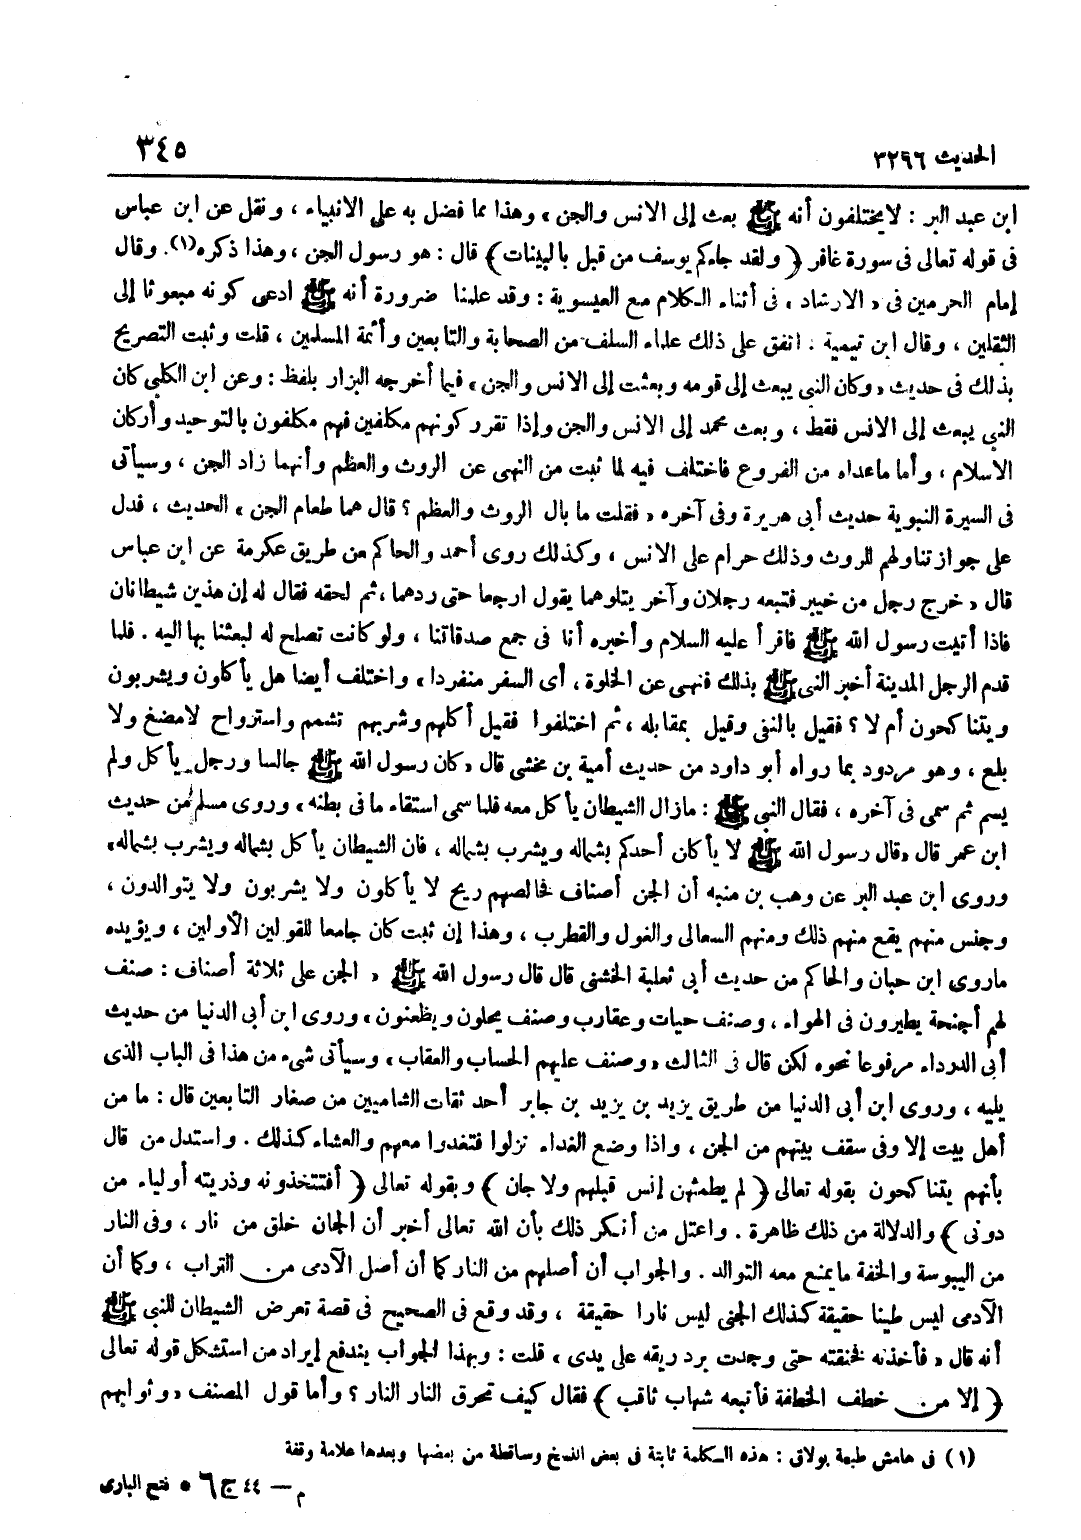 الحديث ٣٢٩٦
٣٤٥
ابن عبد البر : لا يختلفون أنه ﷺ بعث إلى الانس والجن ، وهذا مما فضل به على الانبياء ، ونقل عن ابن عباس
فى قوله تعالى فى سورة غافر ﴿ ولقد جاءكم يوسف من قبل بالبينات ﴾ قال : هو رسول الجن ، وهذا ذكره(١). وقال
إمام الحرمين فى « الارشاد » فى أثناء الكلام مع العيسوية : وقد علمنا ضرورة أنه ﷺ ادعى كونه مبعوثا إلى
الثقلين ، وقال ابن تيمية . اتفق على ذلك علماء السلف من الصحابة والتابعين وأئمة المسلمين ، قلت وثبت التصريح
بذلك فى حديث « وكان النبى يبعث إلى قومه وبعثت إلى الانس والجن » فيما أخرجه البزار بلفظ : وعن ابن الكلبى كان
النبى يبعث إلى الانس فقط ، وبعث محمد إلى الانس والجن وإذا تقرر كونهم مكلفين فهم مكلفون بالتوحيد وأركان
الاسلام ، وأما ماعداه من الفروع فاختلف فيه لما ثبت من النهى عن الروث والعظم وأنهما زاد الجن ، وسيأتى
فى السيرة النبوية حديث أبى هريرة وفى آخره « فقلت ما بال الروث والعظم ؟ قال هما طعام الجن » الحديث ، فدل
على جواز تناولهم للروث وذلك حرام على الانس ، وكذلك روى أحمد والحاكم من طريق عكرمة عن ابن عباس
قال « خرج رجل من خيبر فتبعه رجلان وآخر يتلوهما يقول ارجعا حتى ردهما ، ثم لحقه فقال له إن هذين شيطانان
فاذا أتيت رسول الله ﷺ فاقرأ عليه السلام وأخبره أنا فى جمع صدقاتنا ، ولو كانت تصلح له لبعثنا بها اليه . فلما
قدم الرجل المدينة أخبر النبى ﷺ بذلك فنهى عن الخلوة ، أى السفر منفردا » واختلف أيضا هل يأكلون ويشربون
ويتناكحون أم لا ؟ فقيل بالنفى وقيل بمقابله ، ثم اختلفوا فقيل أكلهم وشربهم تشمم واسترواح لا مضغ ولا
بلع ، وهو مردود بما رواه أبو داود من حديث أمية بن مخشى قال « كان رسول الله ﷺ جالسا ورجل يأكل ولم
يسم ثم سمى فى آخره ، فقال النبى ﷺ : مازال الشيطان يأكل معه فلما سمى استقاء ما فى بطنه » وروى مسلم من حديث
ابن عمر قال « قال رسول الله ﷺ لا يأكلن أحدكم بشماله ويشرب بشماله ، فان الشيطان يأكل بشماله ويشرب بشماله»
وروى ابن عبد البر عن وهب بن منبه أن الجن أصناف فخالصهم ريح لا يأكلون ولا يشربون ولا يتوالدون ،
وجنس منهم يقع منهم ذلك ومنهم السعالى والغول والقطرب ، وهذا إن ثبت كان جامعا للقولين الأولين ، ويؤيده
ماروى ابن حبان والحاكم من حديث أبى ثعلبة الخشنى قال قال رسول الله ﷺ « الجن على ثلاثة أصناف : صنف
لهم أجنحة يطيرون فى الهواء ، وصنف حيات وعقارب وصنف يحلون ويظعنون » وروى ابن أبى الدنيا من حديث
أبى الدرداء مرفوعا نحوه لكن قال فى الثالث « وصنف عليهم الحساب والعقاب » وسيأتى شىء من هذا فى الباب الذى
يليه ، وروى ابن أبى الدنيا من طريق يزيد بن يزيد بن جابر أحد ثقات الشاميين من صغار التابعين قال : ما من
أهل بيت إلا وفى سقف بيتهم من الجن ، واذا وضع الغداء نزلوا فتغدوا معهم والعشاء كذلك . واستدل من قال
بأنهم يتناكحون بقوله تعالى ﴿ لم يطمثهن إنس قبلهم ولا جان ﴾ وبقوله تعالى ﴿ أفتتخذونه وذريته أولياء من
دونى ﴾ والدلالة من ذلك ظاهرة . واعتل من أنكر ذلك بأن الله تعالى أخبر أن الجان خلق من نار ، وفى النار
من اليبوسة والخفة ما يمنع معه التوالد . والجواب أن أصلهم من النار كما أن أصل الآدمى من التراب ، وكما أن
الآدمى ليس طينا حقيقة كذلك الجنى ليس نارا حقيقة ، وقد وقع فى الصحيح فى قصة تعرض الشيطان للنبى ﷺ
أنه قال « فأخذته فخنقته حتى وجدت برد ريقه على يدى » قلت : وبهذا الجواب يندفع إيراد من استشكل قوله تعالى
﴿ إلا من خطف الخطفة فأتبعه شهاب ثاقب ﴾ فقال كيف تحرق النار النار ؟ وأما قول المصنف « وثوابهم
(١) فى هامش طبعة بولاق : هذه الكلمة ثابتة فى بعض النسخ وساقطة من بعضها وبعدها علامة وقفة
م — ٤٤ ج ٦ * فتح البارى